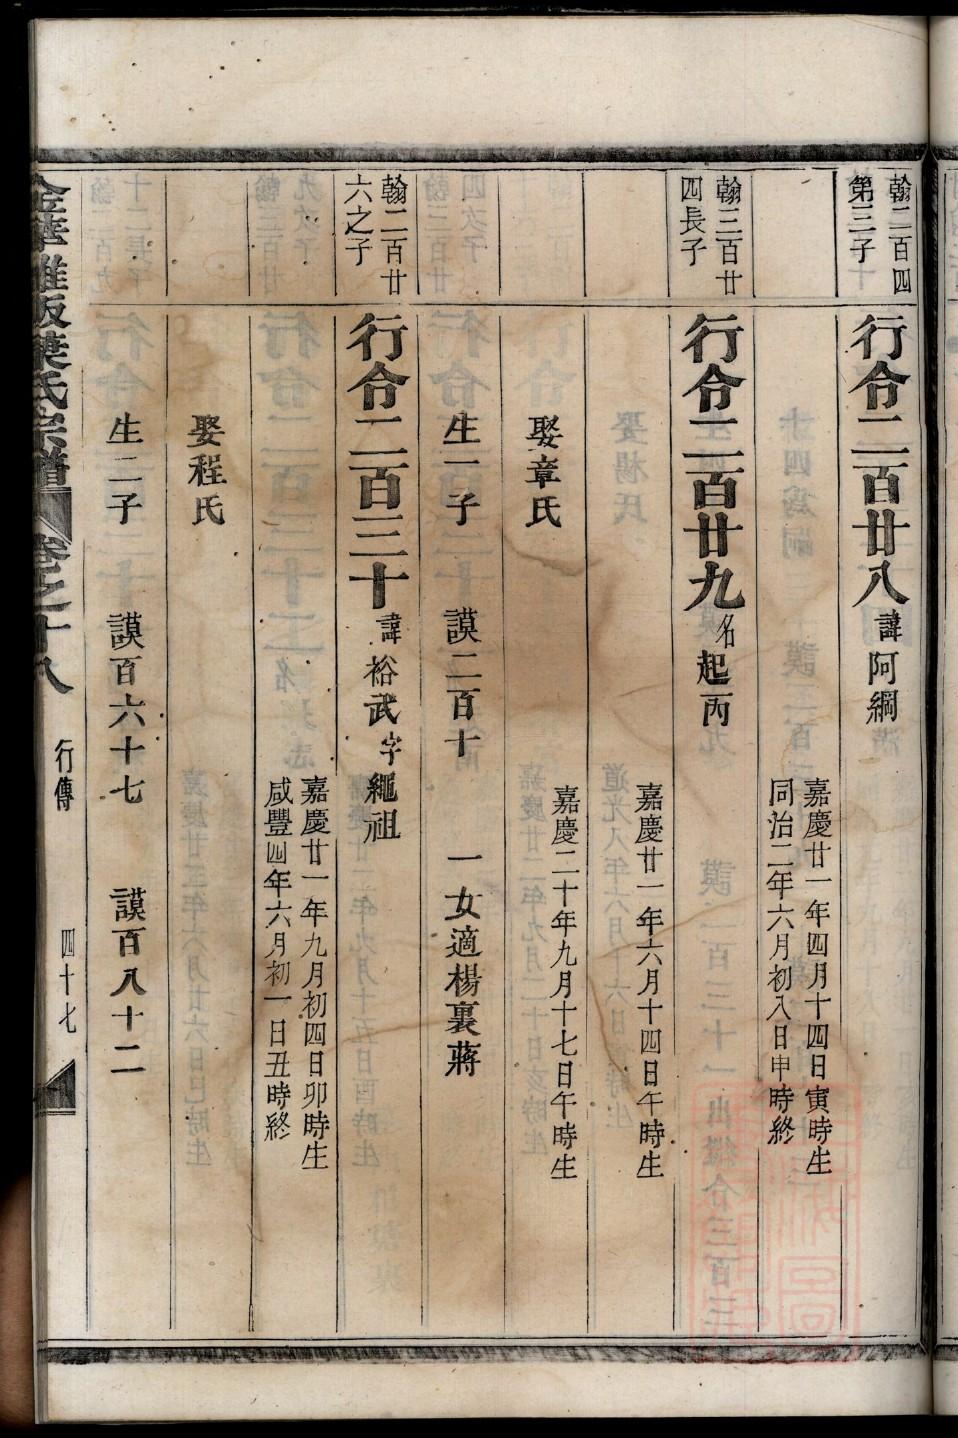 翰二百四
第三子
行令二百廿八 諱阿綱
嘉慶廿一年四月十四日寅時生
同治二年六月初八日申時終
翰三百廿
四長子
行令二百廿九 名起丙
嘉慶廿一年六月十四日午時生
娶章氏
嘉慶二十年九月十七日午時生
生一子 謨二百十 一女適楊裏蔣
翰二百廿
六之子
行令二百三十 諱裕武字繩祖
嘉慶廿一年九月初四日卯時生
咸豐四年六月初一日丑時終
娶程氏
生二子 謨百六十七 謨百八十二
金華雅畈葉氏宗譜 卷之十八 行傳 四十七